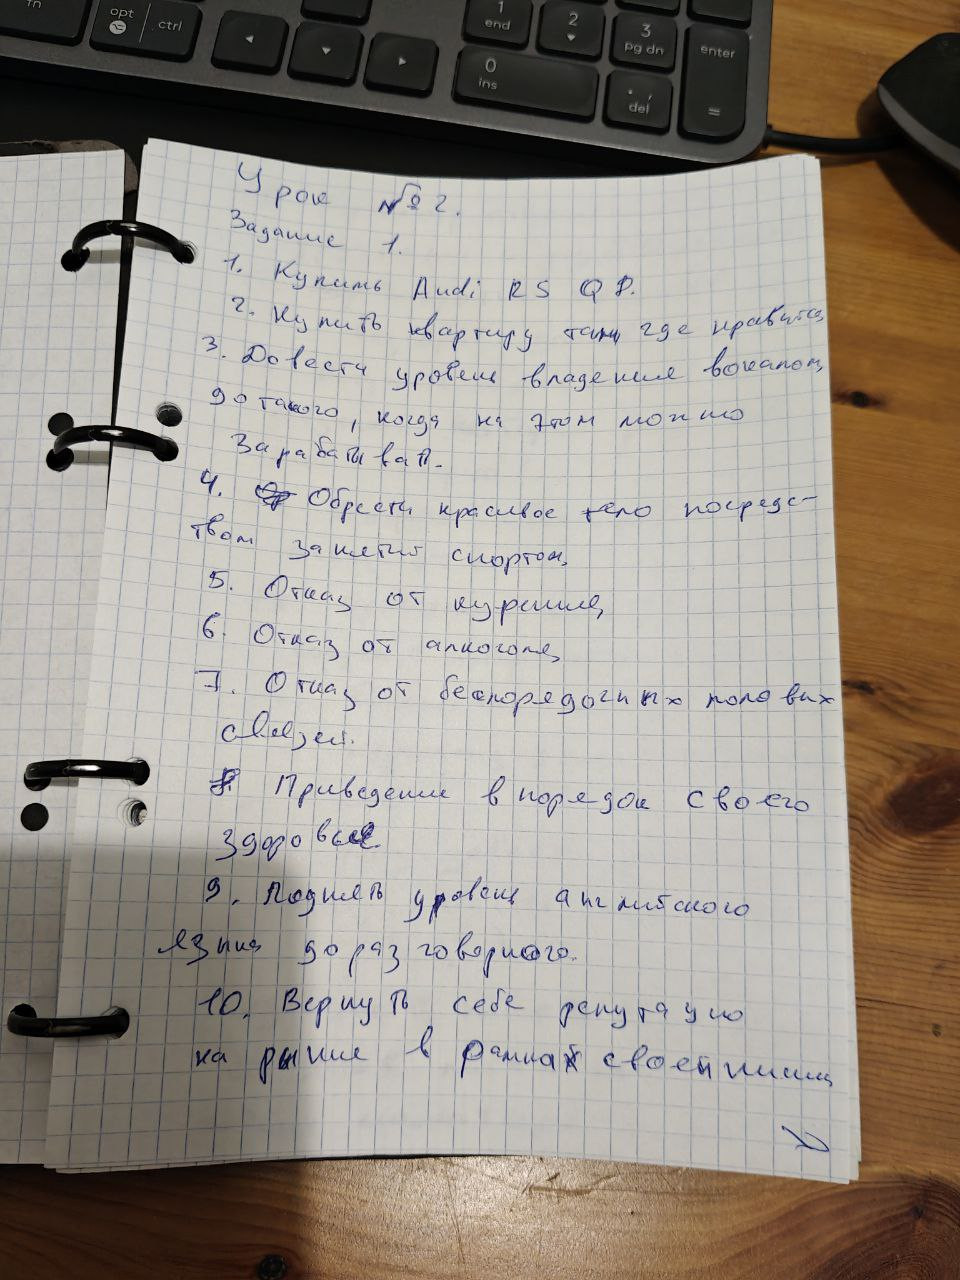 fn
opt
ctrl
1
end
2
3
pg dn
enter
0
ins
del
=
Урок №2.
Задание 1.
1. Купить Audi RS Q8.
2. Купить квартиру там, где нравится
3. Довести уровень владения вокалом
до такого, когда на этом можно
зарабатывать.
4. Обрести красивое тело посредс-
твом занятий спортом,
5. Отказ от курения,
6. Отказ от алкоголя,
7. Отказ от беспорядочных половых
связей.
8. Приведение в порядок своего
здоровья.
9. Поднять уровень английского
языка до разговорного.
10. Вернуть себе репутацию
на рынке в рамках своей ниши